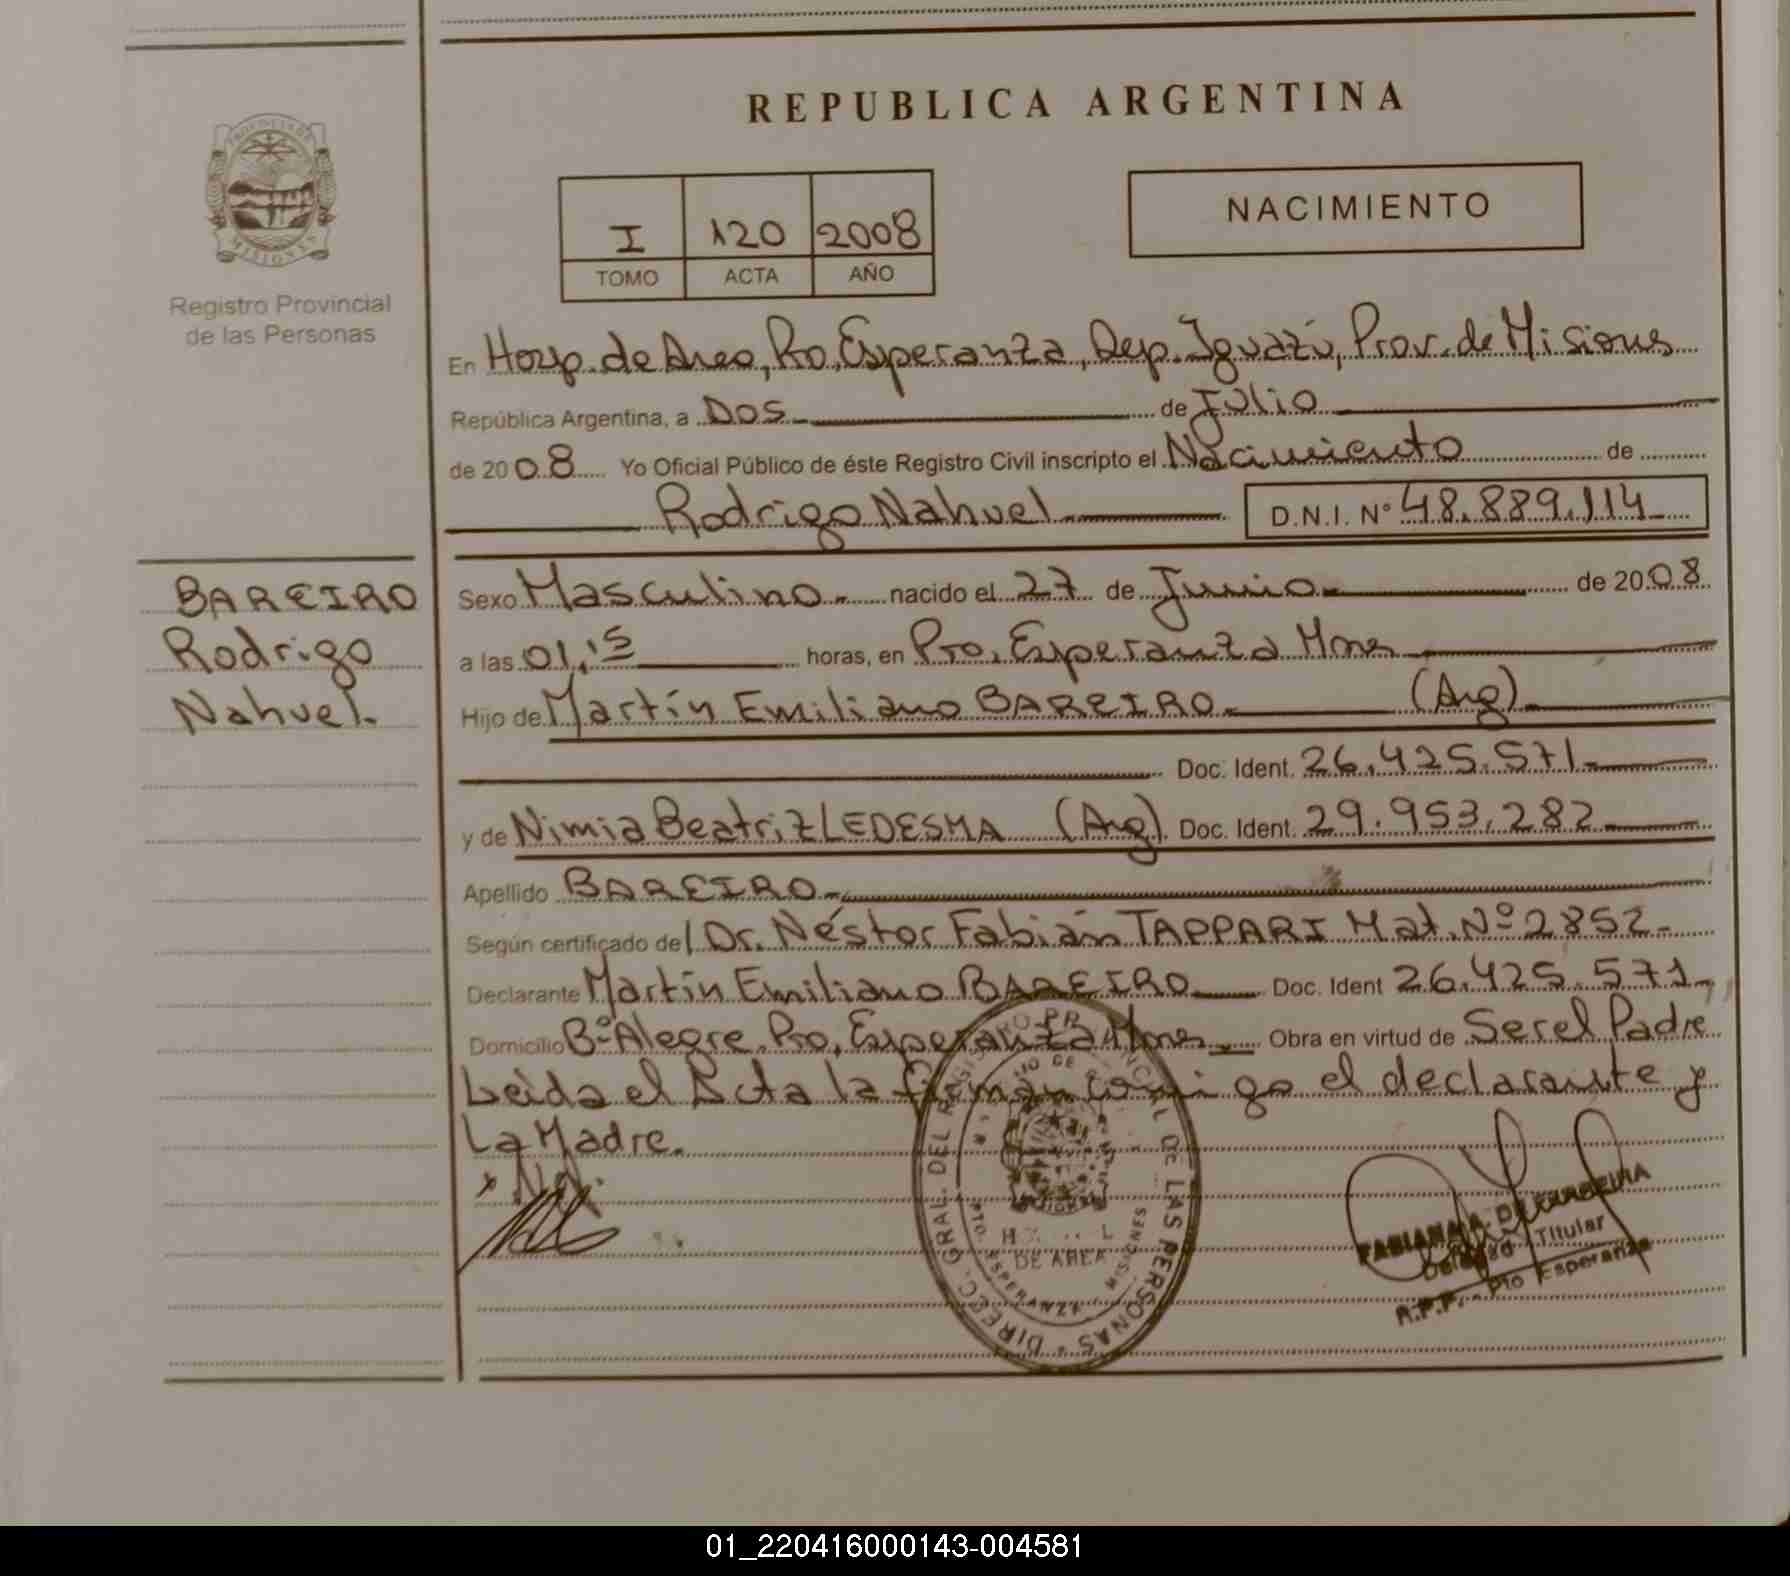 REPUBLICA ARGENTINA
PROVINCIA DE
MISIONES
Registro Provincial
de las Personas
I 120 2008
TOMO ACTA AÑO
NACIMIENTO
En Hosp. de Area, Pto, Esperanza, Dep. Iguazú, Prov. de Misiones
República Argentina, a Dos de Julio
de 2008 Yo Oficial Público de éste Registro Civil inscripto el Nacimiento de
Rodrigo Nahuel D.N.I. Nº 48.889.114
BAREIRO
Rodrigo
Nahuel.
Sexo Masculino.- nacido el 27 de Junio.- de 2008
a las 01,15 horas, en Pto, Esperanza Mnes
Hijo de Martín Emiliano BAREIRO.- (Arg).-
Doc. Ident. 26.425.571.-
y de Nimia Beatriz LEDESMA (Arg). Doc. Ident. 29.953.282.-
Apellido BAREIRO.-
Según certificado de/ Dr. Néstor Fabián TAPPARI Mat. Nº 2852.-
Declarante Martín Emiliano BAREIRO Doc. Ident 26.425.571.-
Domicilio Bº Alegre, Pto, Esperanza Mnes Obra en virtud de Ser el Padre
Leída el Acta la firman conmigo el declarante y
La Madre.
DIREC. GRAL. DEL REGISTRO PROVINCIAL DE LAS PERSONAS
DE AREA
PTO. ESPERANZA - MISIONES
FABIANA A. DE FERREIRA
Delegad Titular
R.P.P. - Pto Esperanza
01_220416000143-004581